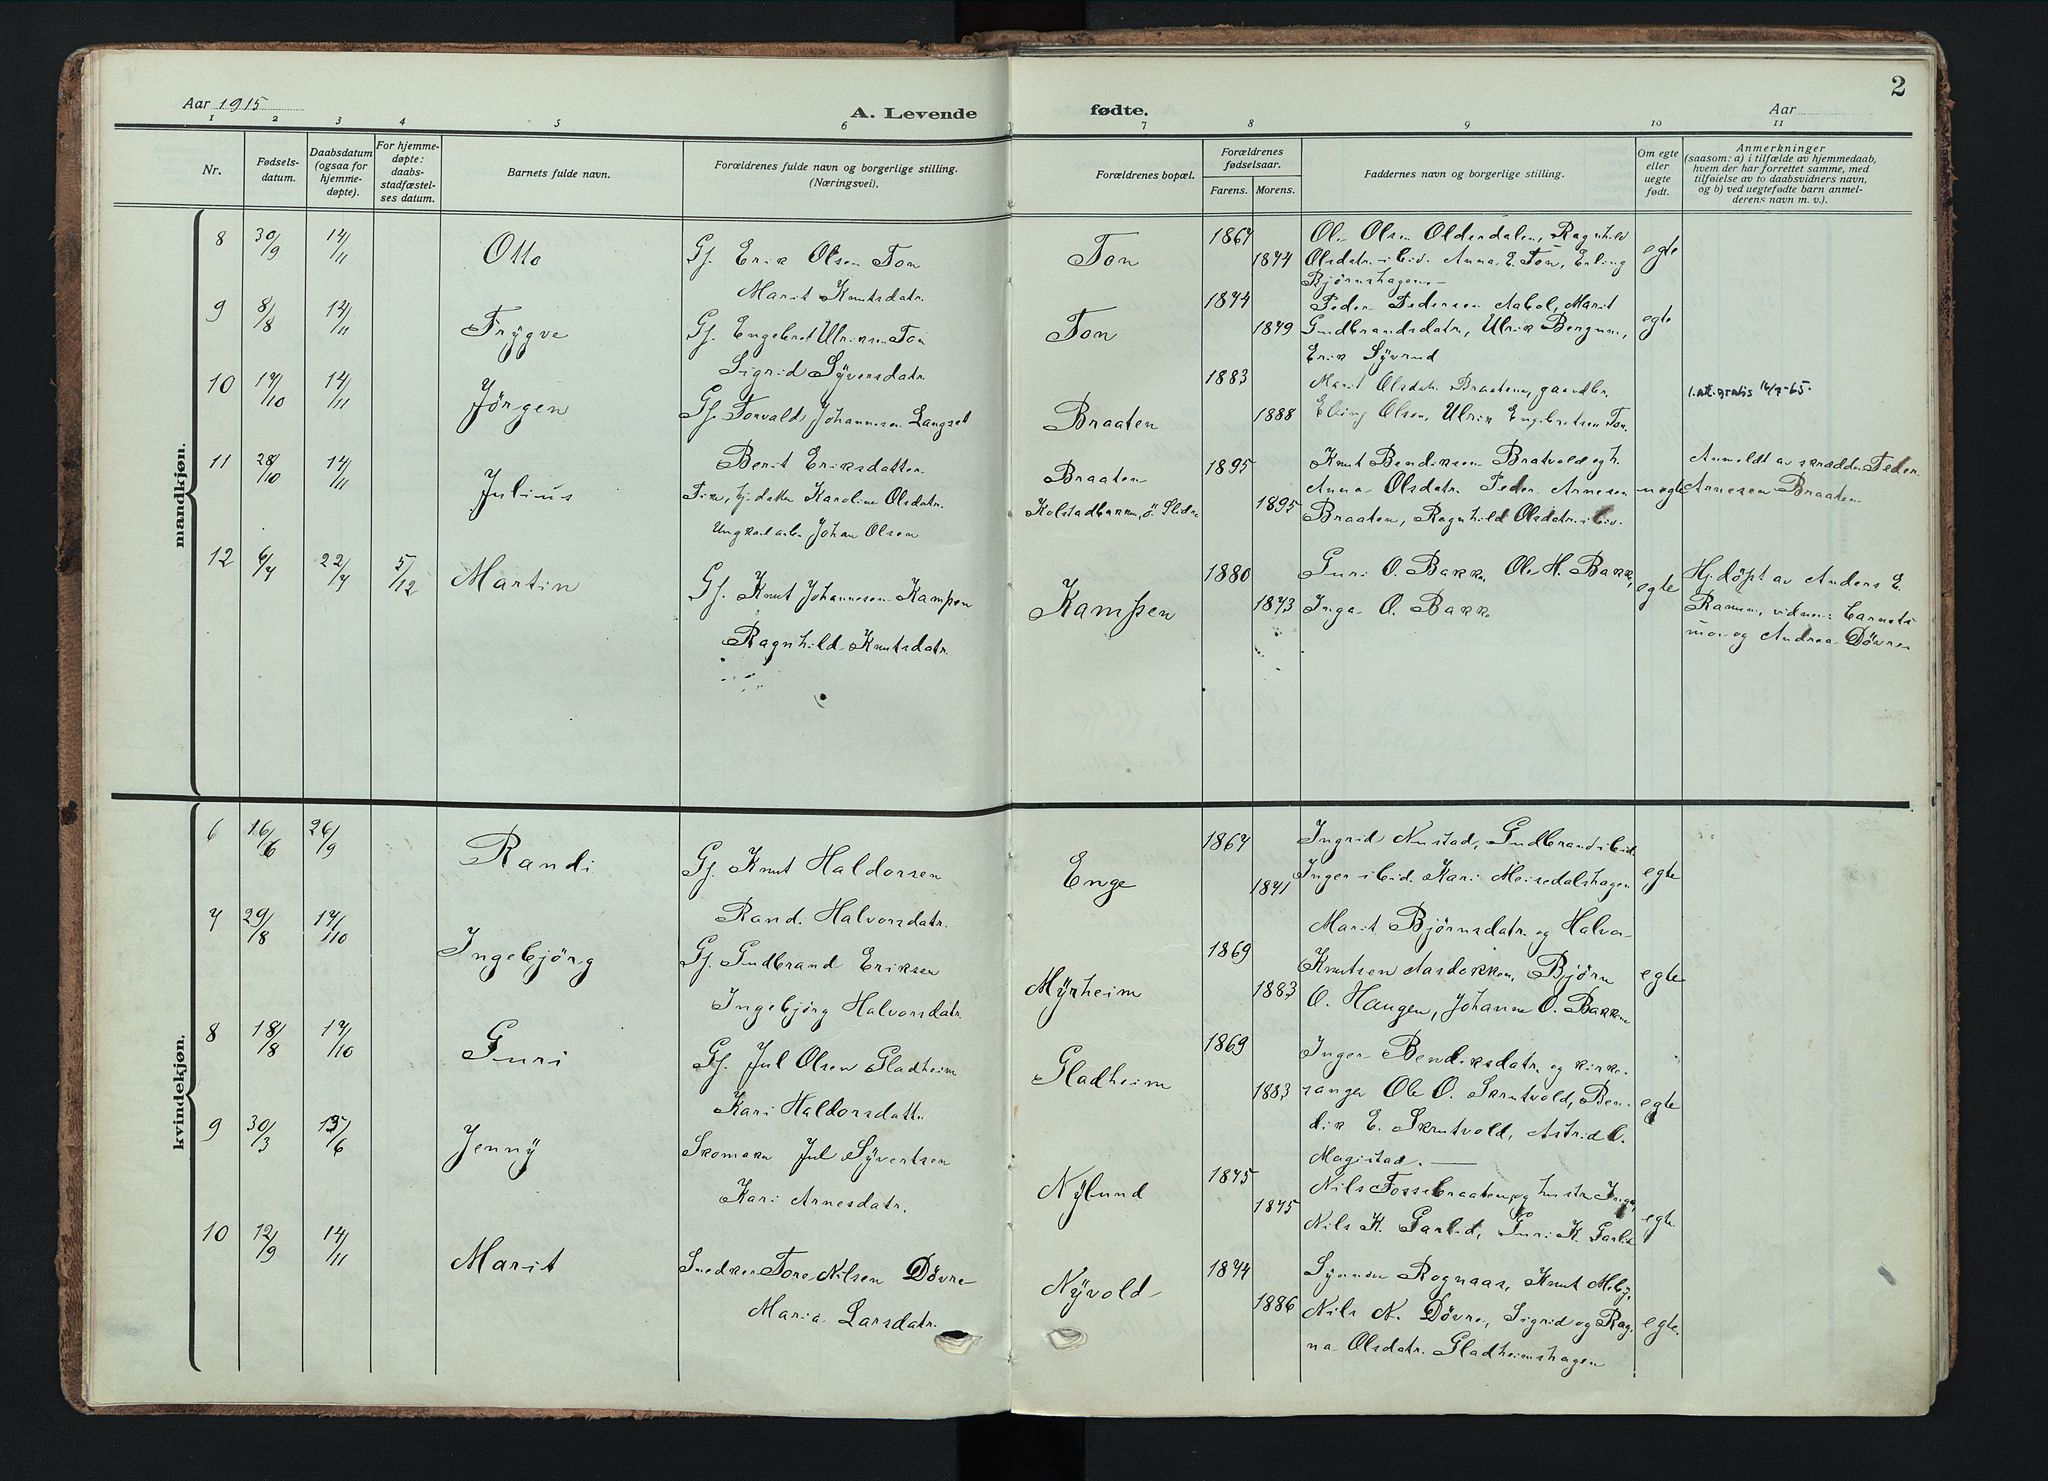 Aar 1915
A. Levende
fødte.
Aar
2
1 2 3 4 5 6 7 8 9 10 11
Nr.
Fødsels-
datum.
Daabsdatum
(ogsaa for
hjemme-
døpte).
For hjemme-
døpte:
daabs-
stadfæstel-
ses datum.
Barnets fulde navn.
Forældrenes fulde navn og borgerlige stilling.
(Næringsvei).
Forældrenes bopæl.
Forældrenes
fødselsaar.
Farens. Morens.
Faddernes navn og borgerlige stilling.
Om egte
eller
uegte
født.
Anmerkninger
(saasom: a) i tilfælde av hjemmedaab,
hvem der har forrettet samme, med
tilføielse av to daabsvidners navn,
og b) ved uegtefødte barn anmel-
derens navn m. v.).
mandkjøn.
8 30/9 14/11 Otto Gj. Erik Olsen Ton
Marit Knutsdatr.
Ton 1867 1874
Ole Olsen Olderdalen, Ragnhild
Olsdatr. ibid. Anna E. Ton, Erling
Bjørnshagen
egte
9 8/8 14/11 Trygve Gj. Engebret Ulriksen Ton
Sigrid Syversdatr.
Ton 1874 1879
Peder Pedersen Aabol, Marit
Gudbrandsdatr, Ulrik Bergum,
Erik Syvrud
egte
10 17/10 14/11 Jørgen Gj. Torvald Johannesen Langset
Berit Eriksdatter
Braaten 1883 1888
Marit Olsdatr. Braaten, gaardbr.
Olsen, Ulrik Engebretsen Ton.
1.at. gratis 16/9-65.
11 28/10 14/11 Julius Tjen., hj.datter Karoline Olsdatr.
Ungkarl arb. Johan Olsen
Braaten
Kolstadbakken, ö. Slidre
1895 1895
Knut Bendiksen Bratvold og h.
Anna Olsdatr. Peder Arnesen
Braaten, Ragnhild Olsdatr. ibid.
uegte
Anmeldt av skrædder Peder
Arnesen Braaten
12 6/7 22/7 5/12 Martin Gj. Knut Johannesen Kampen
Ragnhild Knutsdatr.
Kampen 1880 1873
Guri O. Bakke, Ole H. Bakke,
Inga O. Bakke
egte
Hj.døpt av Anders E.
Ramm, vidner: barnets
mor og Andrea Døvre
kvindekjøn.
6 16/6 26/9 Randi Gj. Knut Haldorsen
Randi Halvorsdatr.
Enge 1867 1871
Ingrid Nustad, Gudbrand ibid.
Inger ibid. Kari Meisedalshagen
egte
7 29/8 17/10 Ingebjørg Gj. Gudbrand Eriksen
Ingebjørg Halvorsdatr.
Myrheim 1869 1883
Marit Bjørnsdatr. og Halvor
Knutsen Aasdokken, Bjørn
O. Haugen, Johanne O. Bakken
egte
8 18/8 17/10 Guri Gj. Jul Olsen Gladheim
Kari Haldorsdatter
Gladheim 1869 1883
Inger Bendiksdatr. og kirke-
sanger Ole O. Skrutvold, Ben-
dik E. Skrutvold, Astrid O.
Magistad.
egte
9 30/3 13/6 Jenny Skomaker Jul Syvertsen
Kari Arnesdatr.
Nylund 1875 1875
Nils Fossebraaten og hustr. Inga,
Nils K. Garlid, Guri K. Garlid
egte
10 12/9 14/11 Marit Snedker Tore Nilsen Døvre
Maria Larsdatr.
Nyvold 1874 1886
Synnøve Rognaas, Knut Moby,
Nils N. Døvre, Sigrid og Rag-
na Olsdatr. Gladheimshagen
egte.